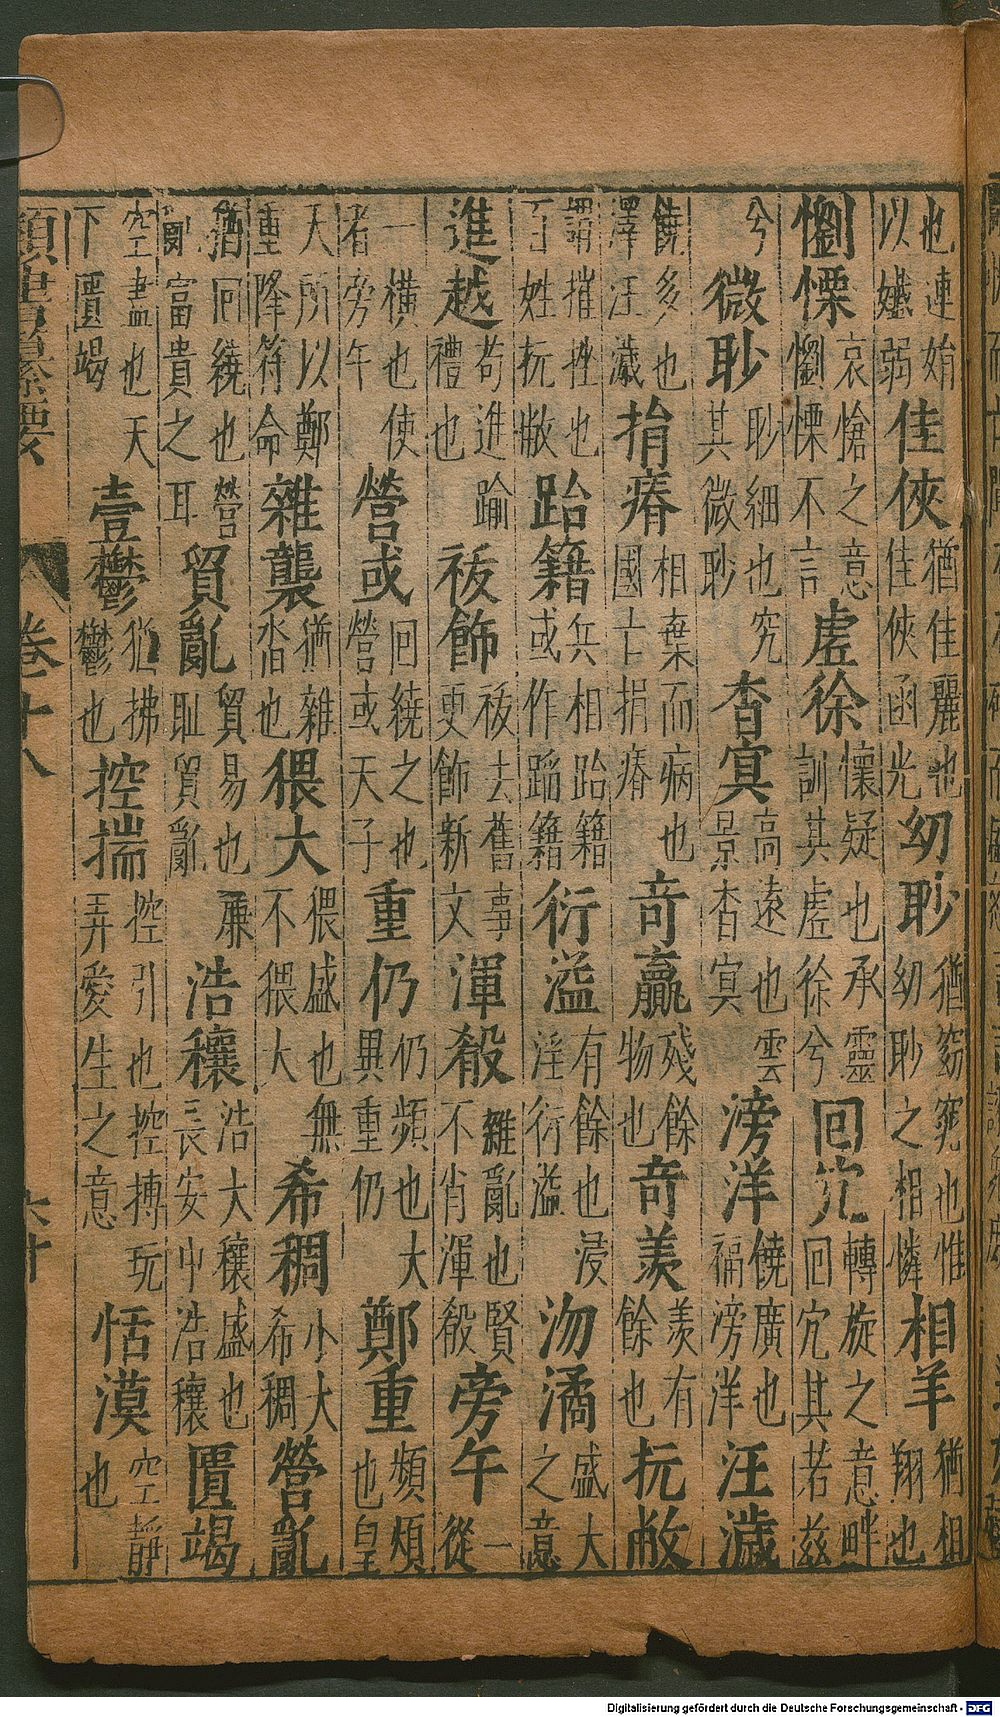 也連娟以孅弱佳俠猶佳麗也佳俠函光幼眇猶窈窕也惟幼眇之相憐相羊猶相翔也
懰慄哀愴之意懰慄不言虗徐懷疑也承靈訓其虗徐兮回宂轉旋之意畔回宂其若兹
兮微眇眇細也究其微眇杳冥高遠也雲景杳冥滂洋饒廣也福滂洋汪濊
饒多也澤汪濊捐瘠相棄而病也國亡捐瘠奇羸殘餘物也奇羨羨有餘也抏敝
謂摧挫也百姓抏敝跆籍兵相跆籍或作蹈籍衍溢有餘也浸淫衍溢沕潏盛大之意
進越苟進踰禮也袚飾袚去舊事更飾新文渾殽雜亂也賢不肖渾殽旁午一從
一橫也使者旁午營或回繞之也營或天子重仍仍頻也大異重仍鄭重頻煩也皇
天所以鄭重降符命雜襲猶雜沓也猥大猥盛也無不猥大希稠小大希稠營亂
猶回繞也營亂富貴之耳貿亂貿易也廉耻貿亂浩穰浩大穰盛也長安中浩穰匱竭
空盡也天下匱竭壹鬱猶拂鬱也控揣控引也控摶玩弄愛生之意恬漠空靜也
類書纂要 卷十八
Digitalisierung gefördert durch die Deutsche Forschungsgemeinschaft - DFG